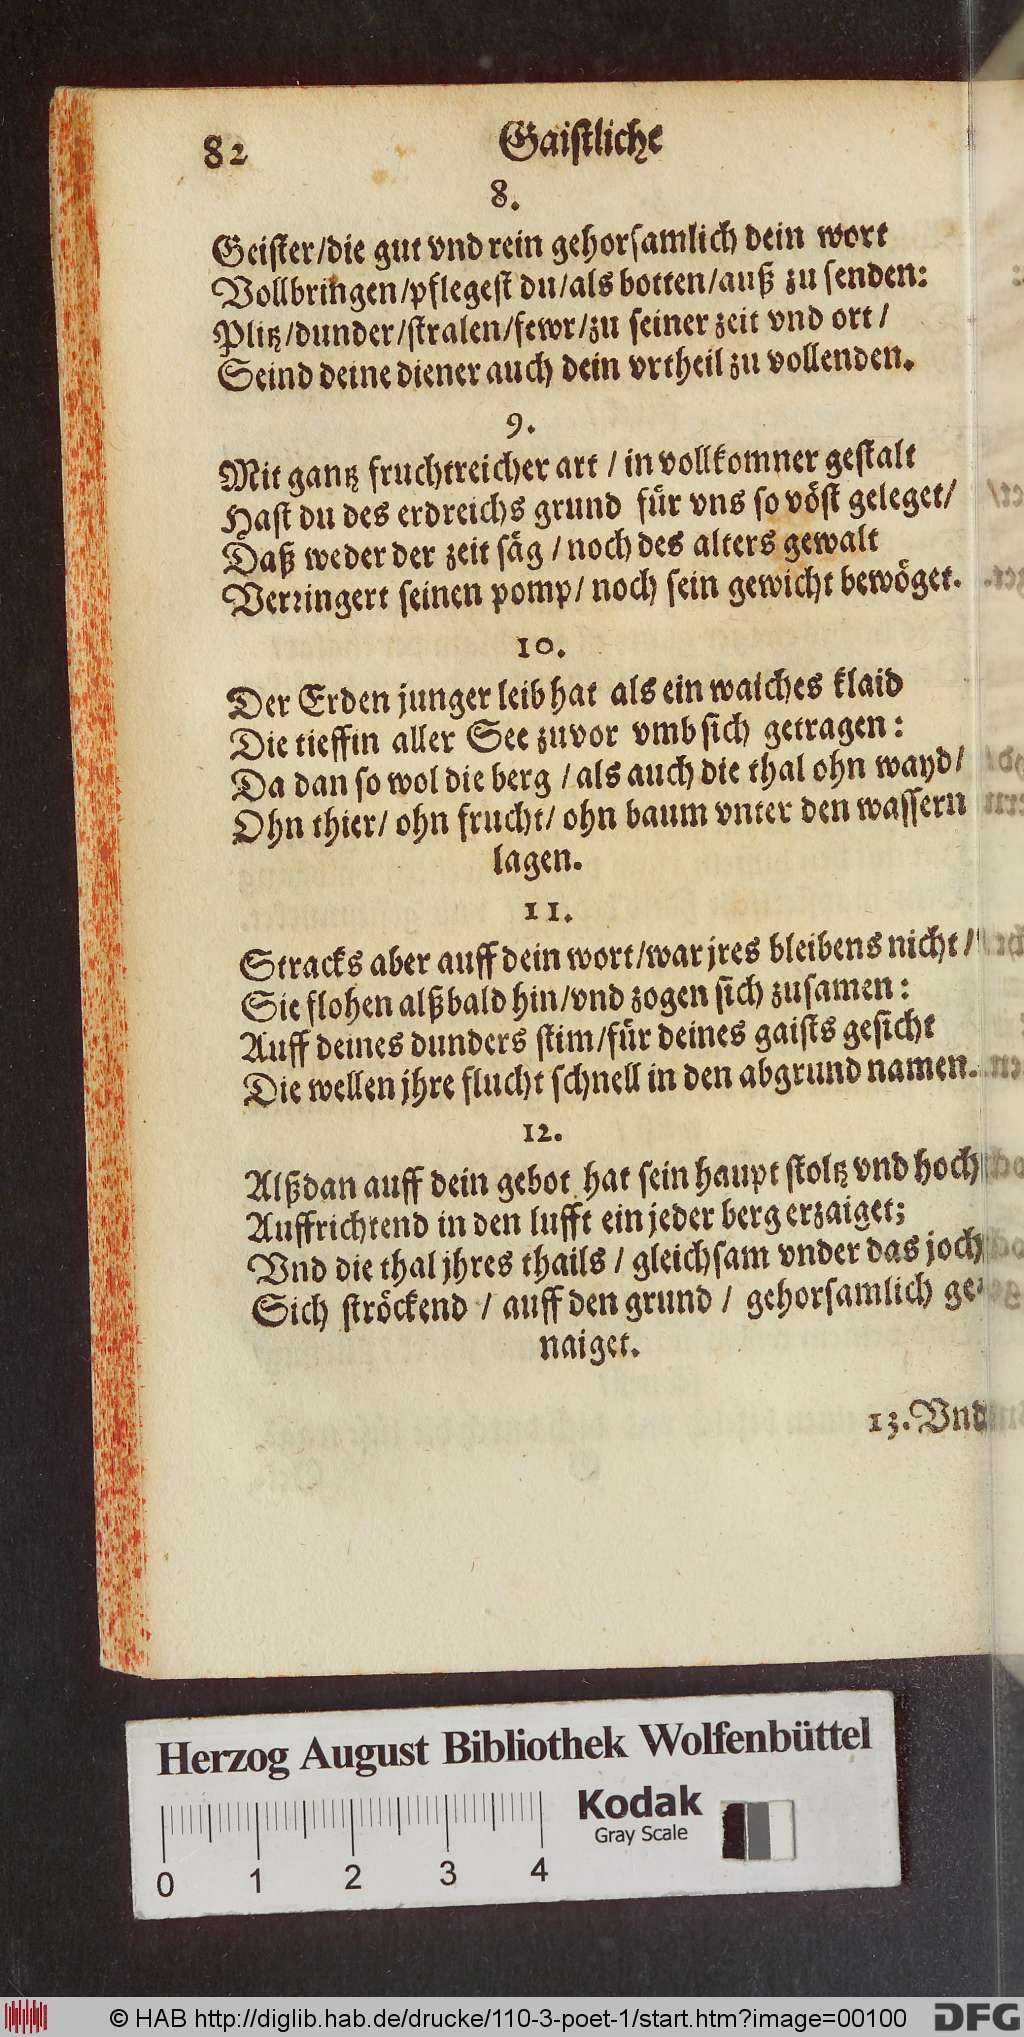 82 Gaistliche
8.
Geister/die gut vnd rein gehorsamlich dein wort
Vollbringen/pflegest du/als botten/auß zu senden:
Plitz/dunder/stralen/fewr/zu seiner zeit vnd ort/
Seind deine diener auch dein vrtheil zu vollenden.
9.
Mit gantz fruchtreicher art / in vollkomner gestalt
Hast du des erdreichs grund für vns so vöst geleget/
Daß weder der zeit säg / noch des alters gewalt
Verringert seinen pomp/ noch sein gewicht bewöget.
10.
Der Erden junger leib hat als ein waiches klaid
Die tieffin aller See zuvor vmb sich getragen:
Da dan so wol die berg / als auch die thal ohn wayd/
Ohn thier/ ohn frucht/ ohn baum vnter den wassern
lagen.
11.
Stracks aber auff dein wort/war jres bleibens nicht/
Sie flohen alßbald hin/vnd zogen sich zusamen:
Auff deines dunders stim/für deines gaists gesicht
Die wellen jhre flucht schnell in den abgrund namen.
12.
Alßdan auff dein gebot hat sein haupt stoltz vnd hoch
Auffrichtend in den lufft ein jeder berg erzaiget;
Vnd die thal jhres thails / gleichsam vnder das joch
Sich ströckend / auff den grund / gehorsamlich ge-
naiget.
13. Vnd
Herzog August Bibliothek Wolfenbüttel
Kodak
Gray Scale
0 1 2 3 4
© HAB http://diglib.hab.de/drucke/110-3-poet-1/start.htm?image=00100
DFG